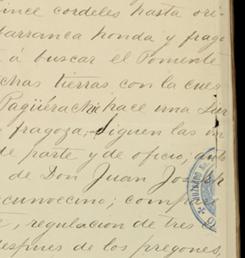 ince cordeles hasta ori-
barranca honda y frago
á buscar el Poniente
chas tierras, con la cues
Pagüerachi hace una
fragoza, siguen las
de parte y de oficio,
de Don Juan José
cunoccino;
, regulacion de tres
despues de los pregones,